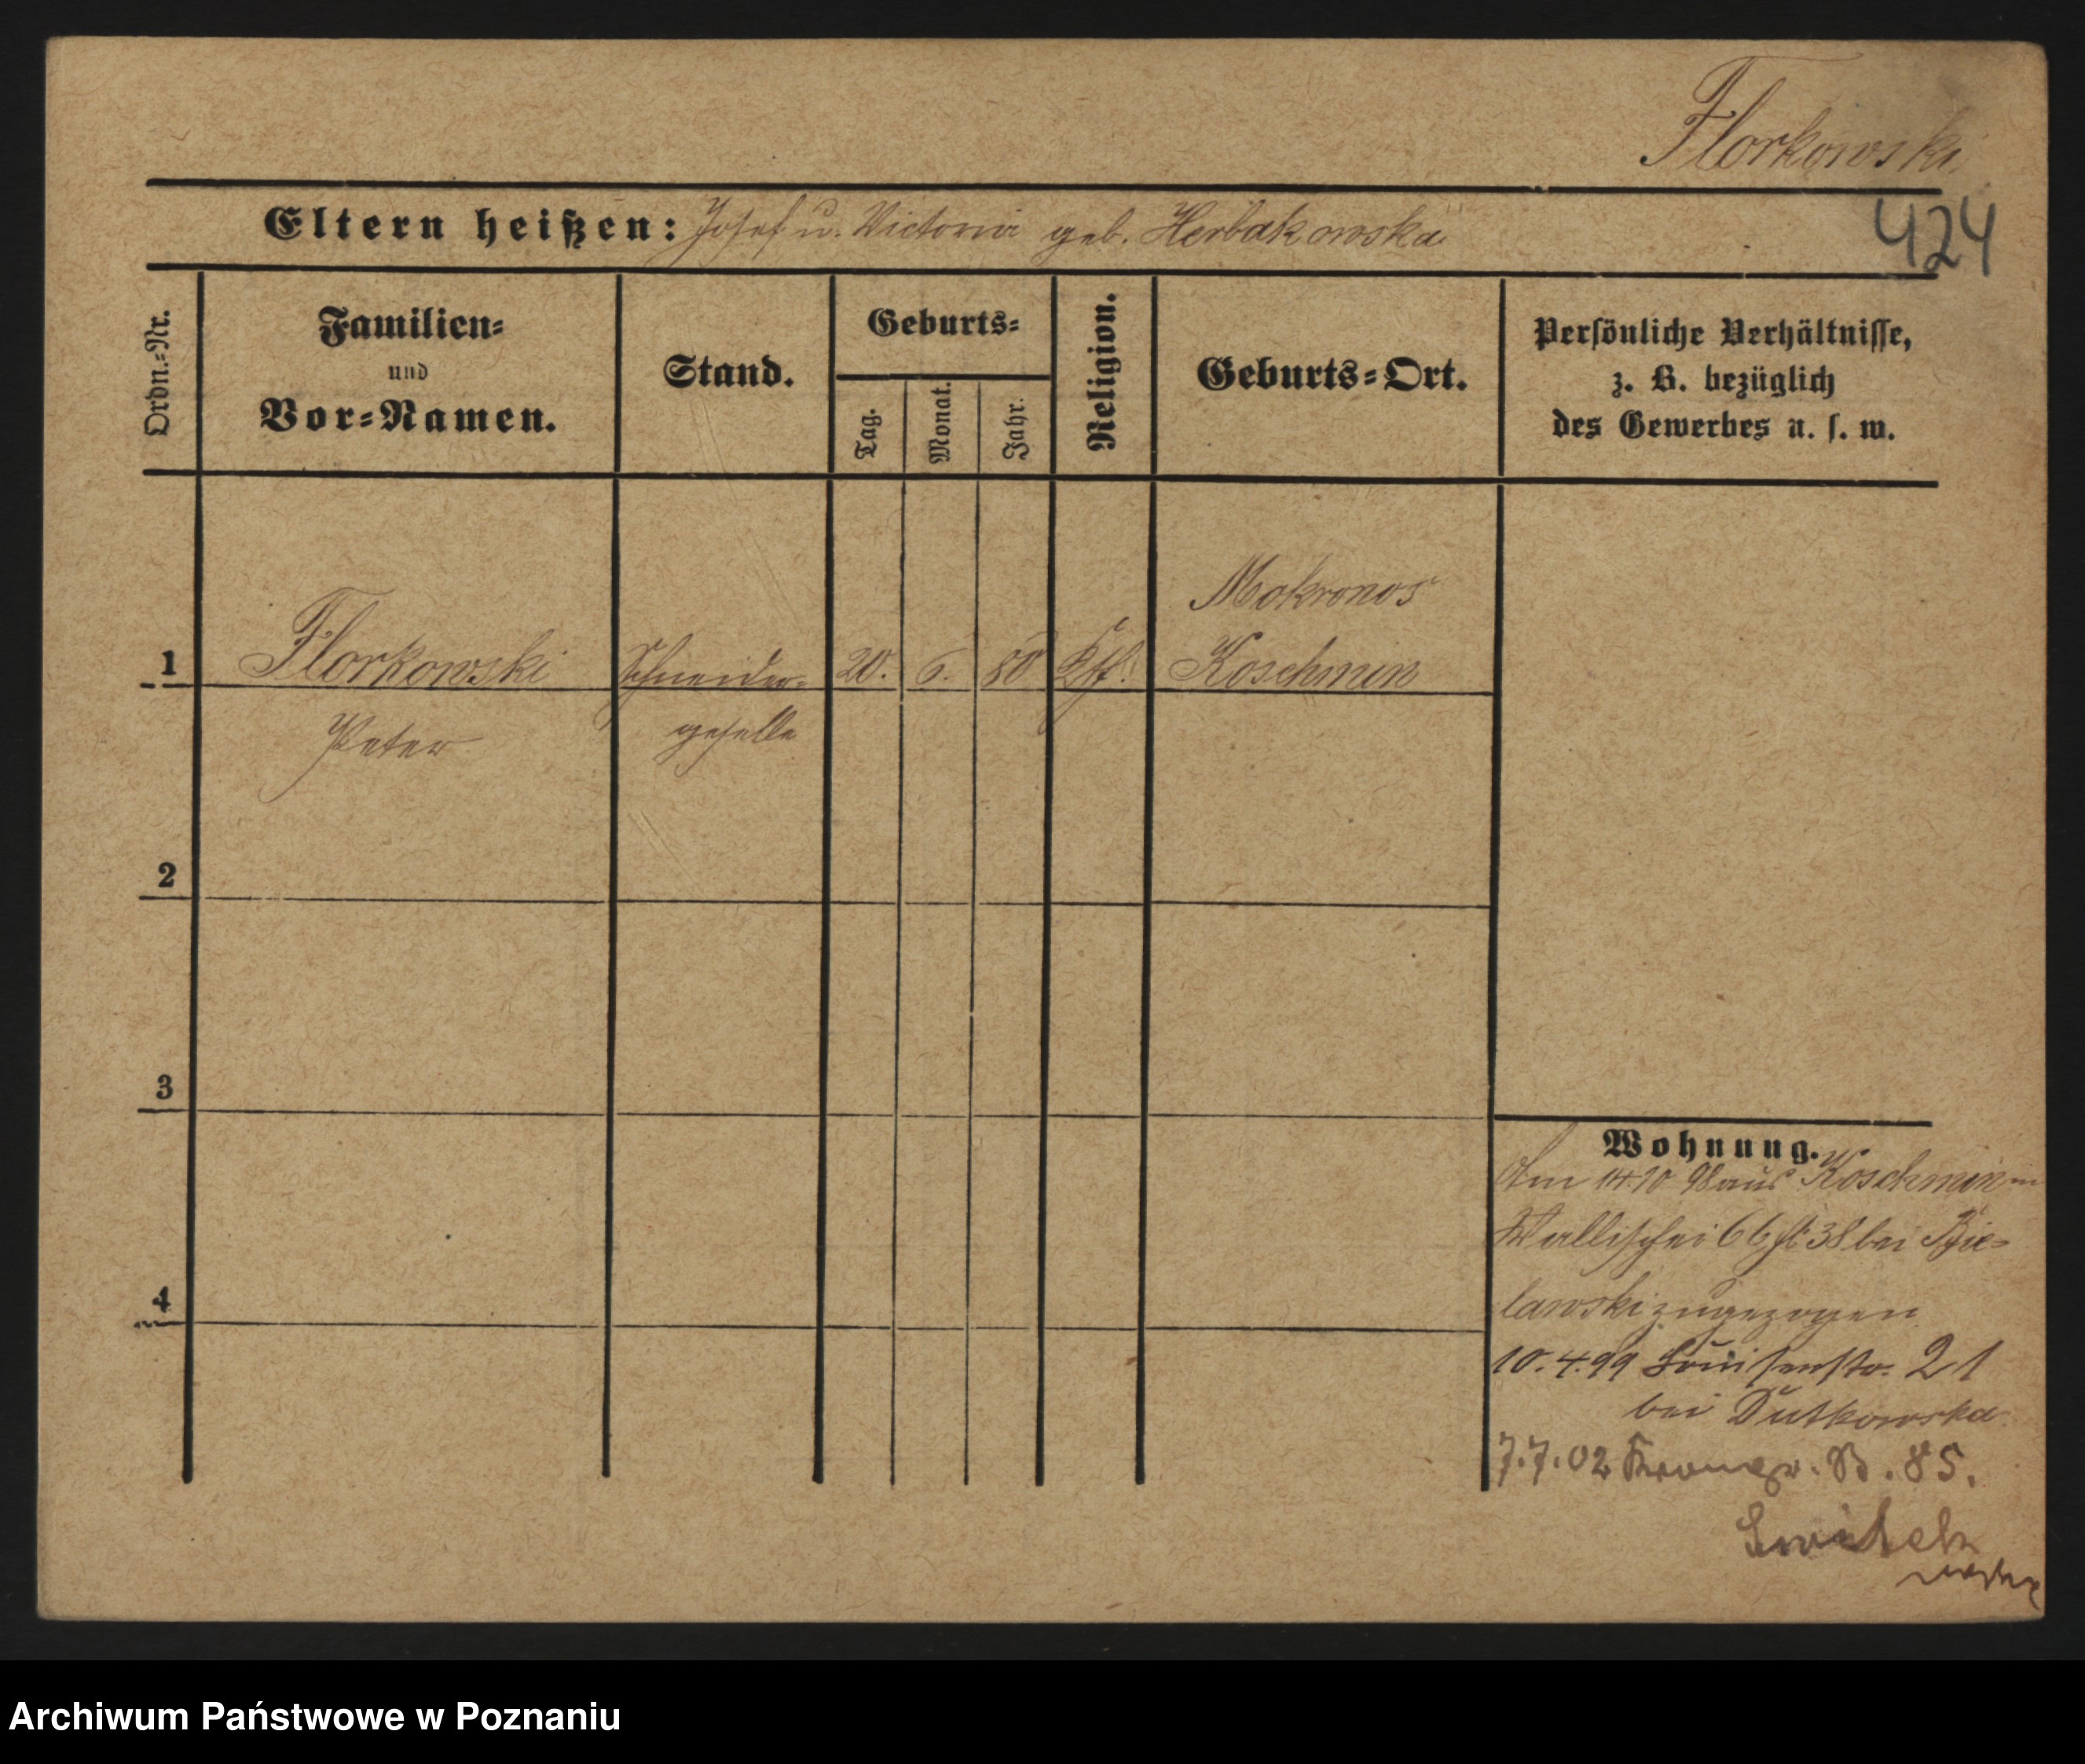 Florkowski
424
Eltern heißen: Josef u. Victoria geb. Herbakowska
Ordn.=Nr.
Familien=
und
Vor=Namen.
Stand.
Geburts=
Tag.
Monat.
Jahr.
Religion.
Geburts=Ort.
Persönliche Verhältnisse,
z. B. bezüglich
des Gewerbes u. s. w.
Mokronos
1 Florkowski Schneider= 20. 6. 80 Kth. Koschmin
Peter geselle
2
3
4
Wohnung.
Am 14.10 98 aus Koschmin in
Wallischei 66 38 bei Bie=
lawski zugezogen
10.4.99 Louisenstr. 21
bei Dutkowska
7.7.02 85.
Archiwum Państwowe w Poznaniu